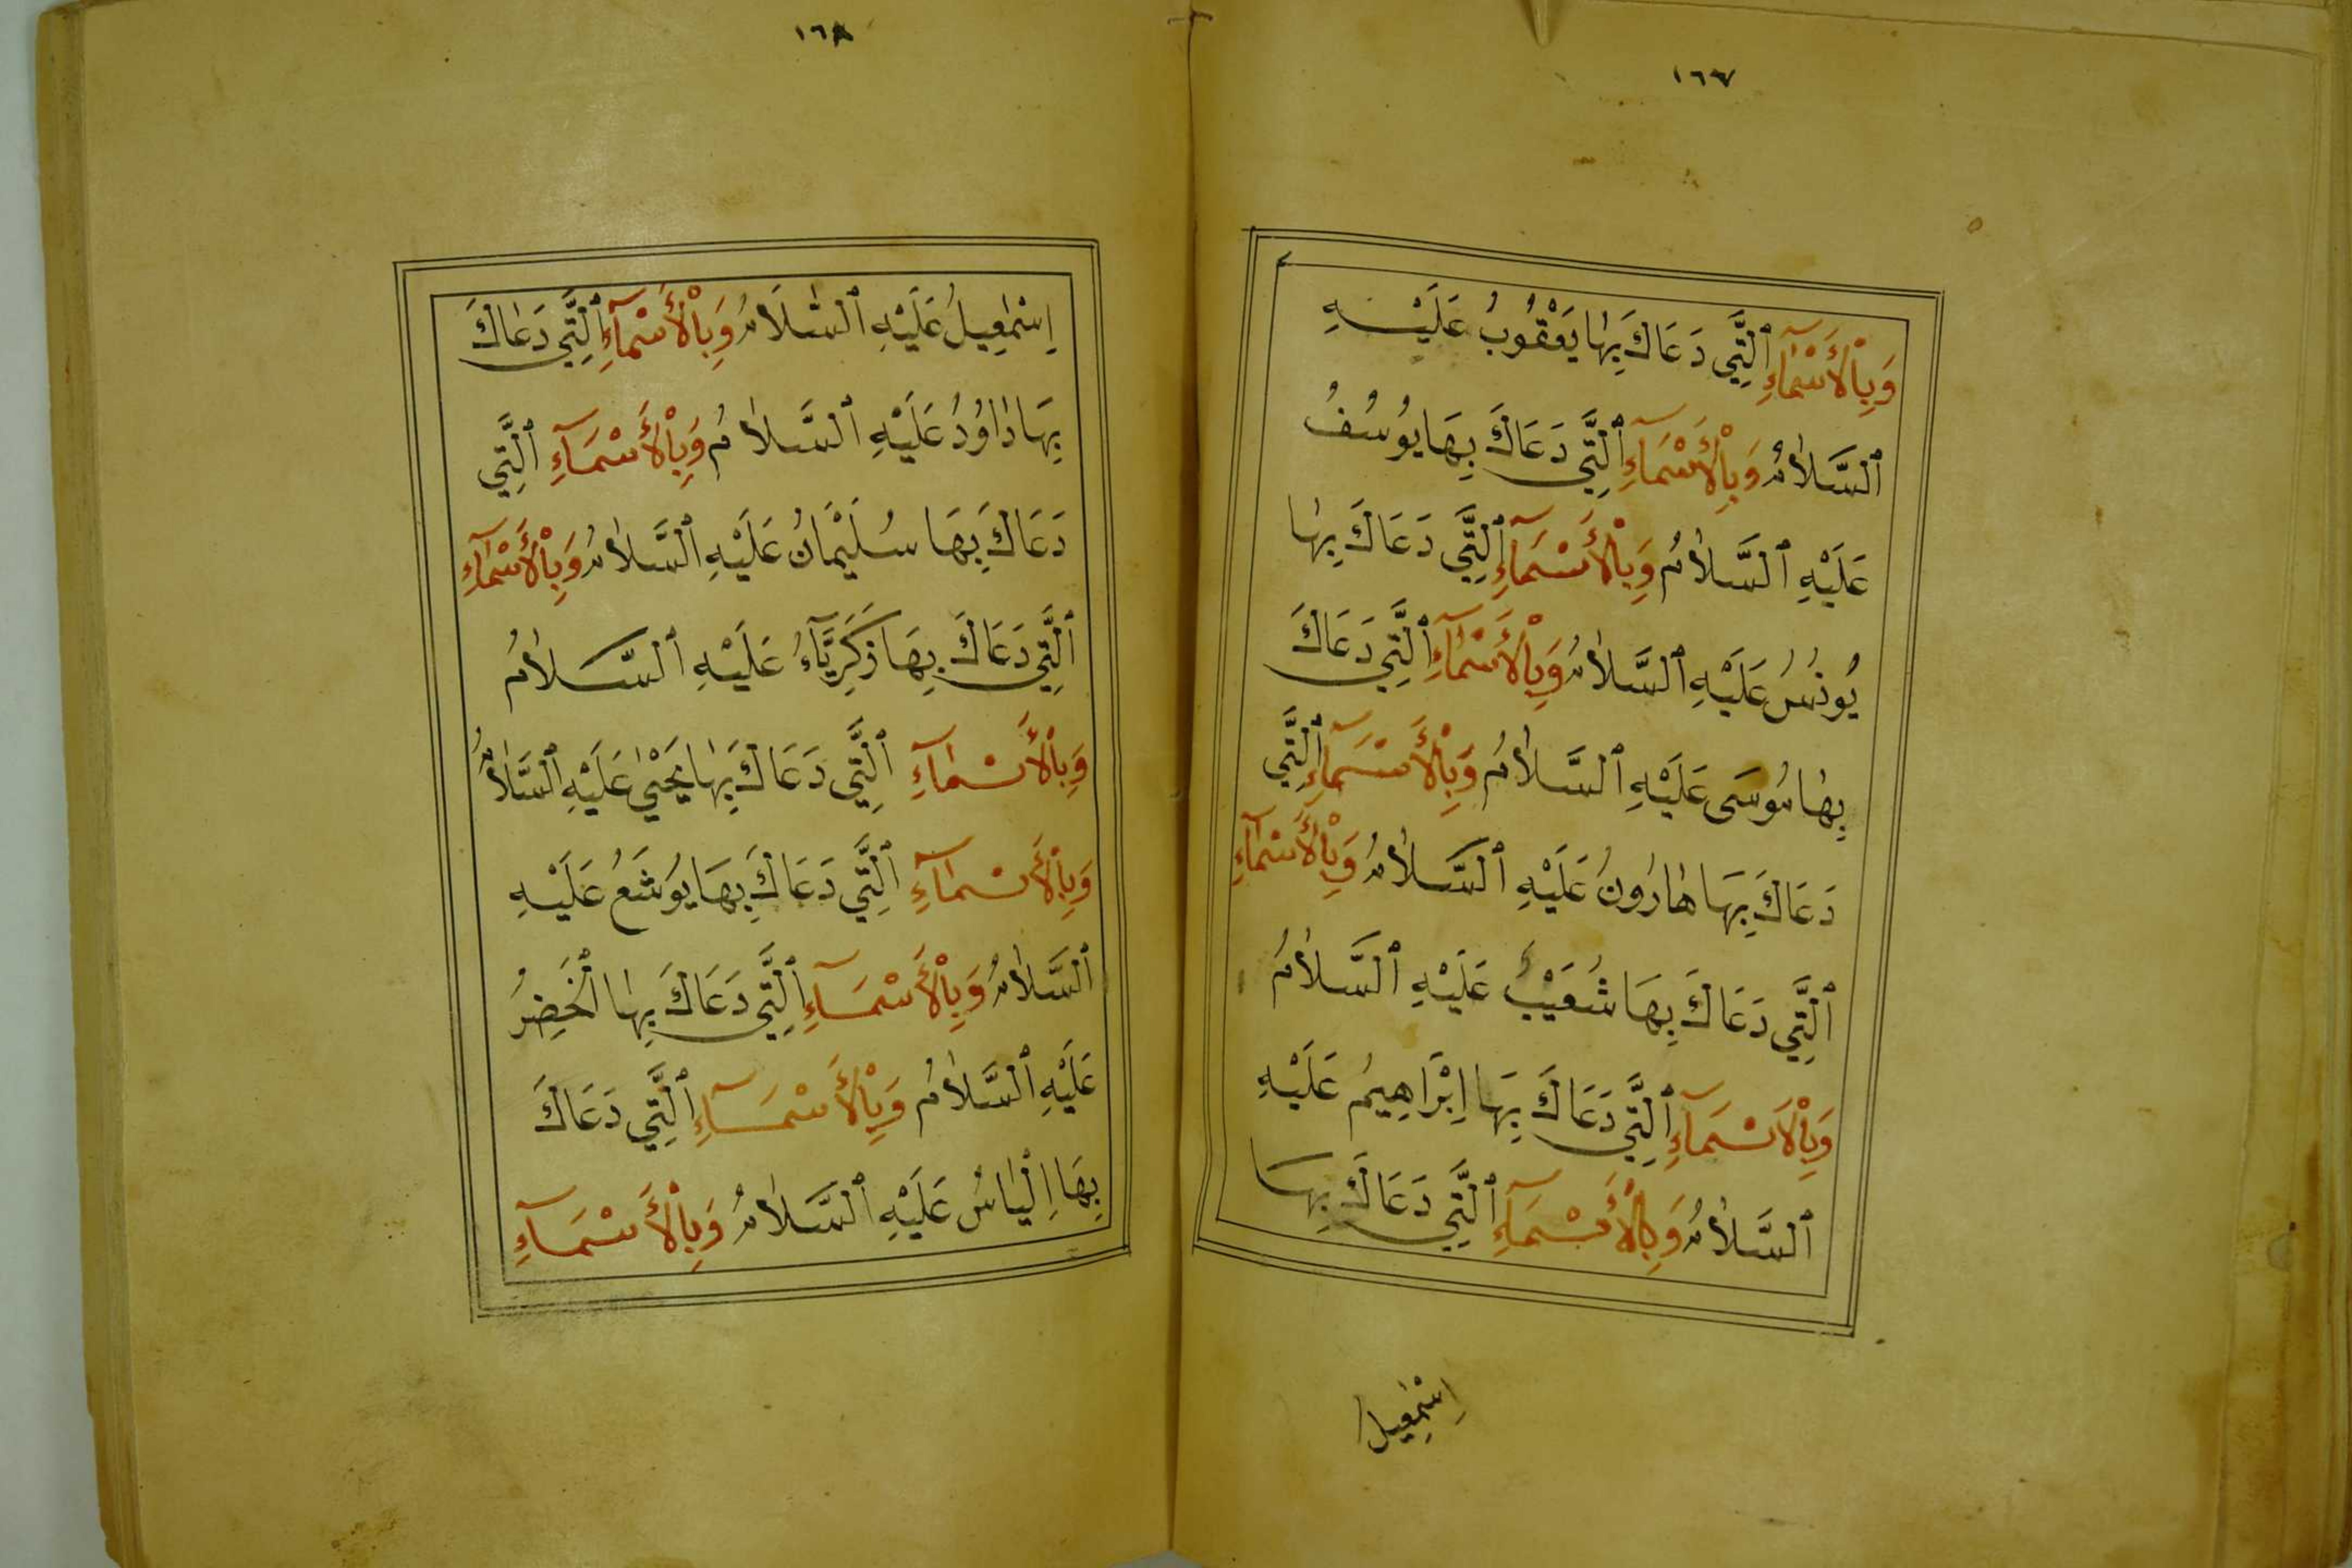 ١٦٧
وَبِالْأَسْمَآءِ ٱلَّتِي دَعَاكَ بِهَا يَعْقُوبُ عَلَيْهِ
ٱلسَّلَامُ وَبِالْأَسْمَآءِ ٱلَّتِي دَعَاكَ بِهَا يُوسُفُ
عَلَيْهِ ٱلسَّلَامُ وَبِالْأَسْمَآءِ ٱلَّتِي دَعَاكَ بِهَا
يُونُسُ عَلَيْهِ ٱلسَّلَامُ وَبِالْأَسْمَآءِ ٱلَّتِي دَعَاكَ
بِهَا مُوسَى عَلَيْهِ ٱلسَّلَامُ وَبِالْأَسْمَآءِ ٱلَّتِي
دَعَاكَ بِهَا هَارُونُ عَلَيْهِ ٱلسَّلَامُ وَبِالْأَسْمَآءِ
ٱلَّتِي دَعَاكَ بِهَا شُعَيْبُ عَلَيْهِ ٱلسَّلَامُ
وَبِالْأَسْمَآءِ ٱلَّتِي دَعَاكَ بِهَا اِبْرَاهِيمُ عَلَيْهِ
ٱلسَّلَامُ وَبِالْأَسْمَآءِ ٱلَّتِي دَعَاكَ بِهَا
اِسْمٰعِيلُ
١٦٨
اِسْمٰعِيلُ عَلَيْهِ ٱلسَّلَامُ وَبِالْأَسْمَآءِ ٱلَّتِي دَعَاكَ
بِهَا دَاوُدُ عَلَيْهِ ٱلسَّلَامُ وَبِالْأَسْمَآءِ ٱلَّتِي
دَعَاكَ بِهَا سُلَيْمَانُ عَلَيْهِ ٱلسَّلَامُ وَبِالْأَسْمَآءِ
ٱلَّتِي دَعَاكَ بِهَا زَكَرِيَّآءُ عَلَيْهِ ٱلسَّلَامُ
وَبِالْأَسْمَآءِ ٱلَّتِي دَعَاكَ بِهَا يَحْيٰى عَلَيْهِ ٱلسَّلَامُ
وَبِالْأَسْمَآءِ ٱلَّتِي دَعَاكَ بِهَا يُوشَعُ عَلَيْهِ
ٱلسَّلَامُ وَبِالْأَسْمَآءِ ٱلَّتِي دَعَاكَ بِهَا الْخَضِرُ
عَلَيْهِ ٱلسَّلَامُ وَبِالْأَسْمَآءِ ٱلَّتِي دَعَاكَ
بِهَا اِلْيَاسُ عَلَيْهِ ٱلسَّلَامُ وَبِالْأَسْمَآءِ